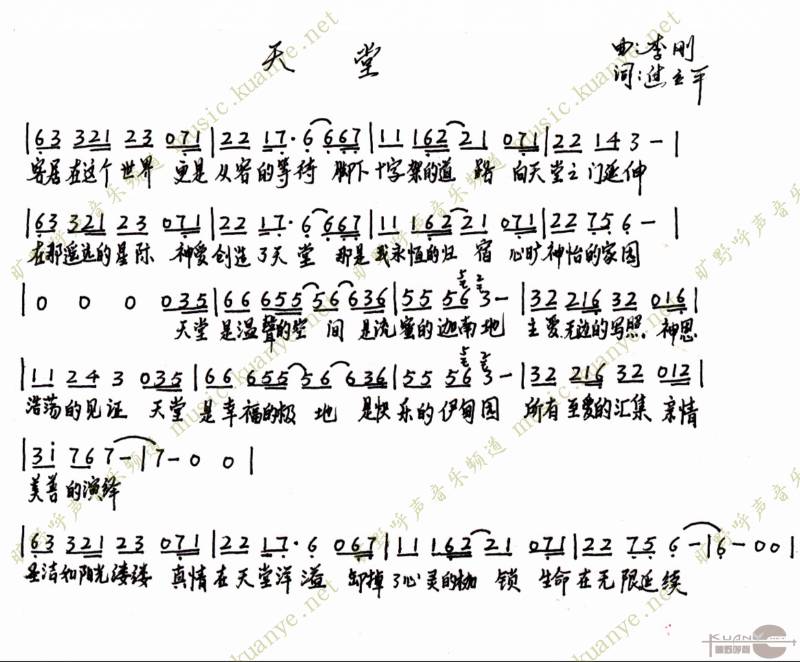 天 堂
曲:李刚
词:焦立平
|63 321 23 071|22 17· 6 667|11 162 21 071|22 143 -|
客居在这个世界 更是从容的等待 脚下十字架的道路 向天堂之门延伸
|63 321 23 071|22 17· 6 667|11 162 21 071|22 75 6 -|
在那遥远的星际 神爱创造了天堂 那是我永恒的归宿 心旷神怡的家园
|0 0 0 035|66 655 56 636|55 56 3 -|32 216 32 016|
天堂 是温馨的空间 是流蜜的迦南地 主爱无边的写照,神恩
|11 24 3 035|66 655 56 636|55 56 3 -|32 216 32 012|
浩荡的见证 天堂 是幸福的极地 是快乐的伊甸园 所有至爱的汇集 亲情
|3i 767 -|7 - 0 0|
美善的演绎
|63 321 23 071|22 17· 6 067|11 162 21 071|22 75 6 -|6 - 00|
圣洁和阳光缕缕 真情在天堂洋溢 卸掉了心灵的枷锁 生命在无限延续
旷野呼声音乐频道 music.kuanye.net
KUANYE
旷野呼声